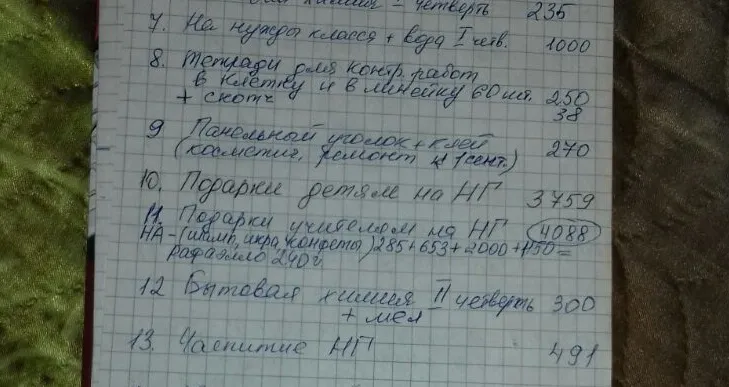 химия – четверть 235
7. На нужды класса + вода I четв. 1000
8. Тетради для контр. работ
в клетку и в линейку 60 шт. 250
+ скотч 38
9 Панельный уголок + клей
(косметич. ремонт к 1 сент.) 270
10. Подарки детям на НГ 3759
11. Подарки учителям на НГ 4088
НА - (шамп, икра, конфеты) 285+653+2000+1150=
рафаэлло 240г
12 Бытовая химия II четверть 300
+ мел
13. Чаепитие НГ 491